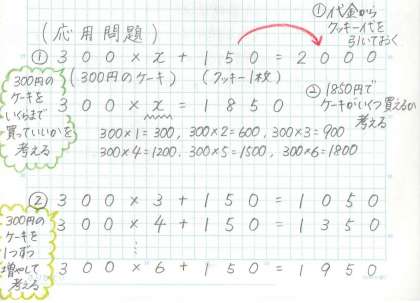 (応用問題)
①代金から
クッキー代を
引いておく
① 300×x+150=2000
(300円のケーキ) (クッキー1枚)
300円の
ケーキを
いくらまで
買っていいかを
考える
300×x=1850
②1850円で
ケーキがいくつ買えるか
考える
300×1=300, 300×2=600, 300×3=900
300×4=1200, 300×5=1500, 300×6=1800
② 300×3+150=1050
300×4+150=1350
⋮
300×6+150=1950
300円の
ケーキを
1つずつ
増やして
考える